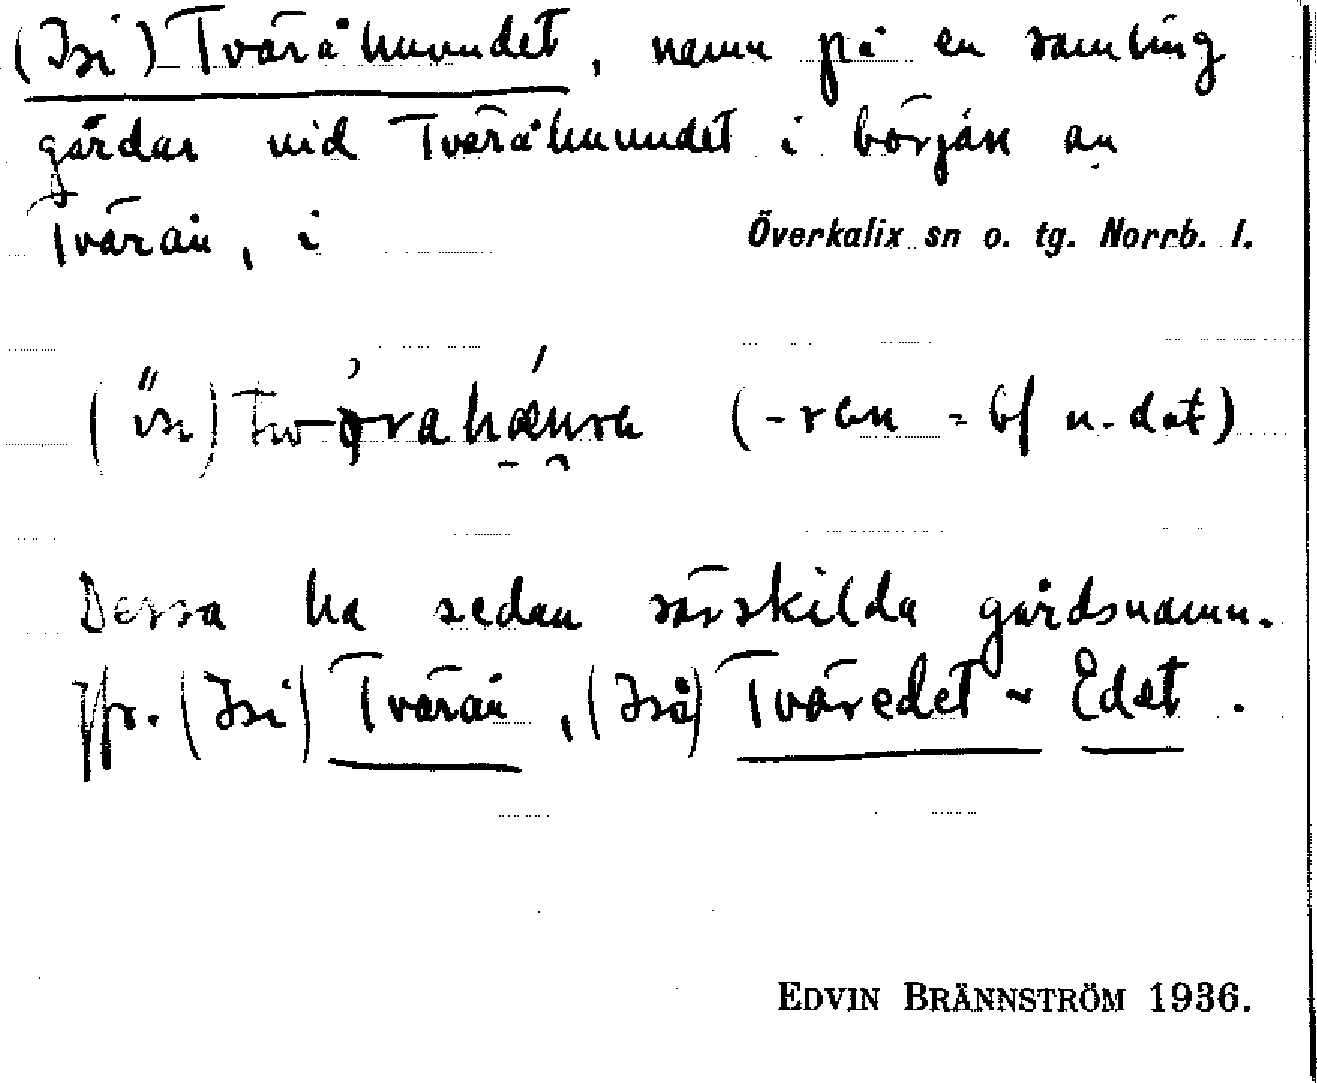 (Isi) Tväråhuvudet, namn på en samling
gårdar vid Tväråhuvudet i början av
Tvärån, i Överkalix sn o. tg. Norrb. l.
(-ren = bf n. dat)
Dessa ha sedan särskilda gårdsnamn.
Jfr. (Isi) Tvärån, (Iså) Tväredet ~ Edet.
EDVIN BRÄNNSTRÖM 1936.